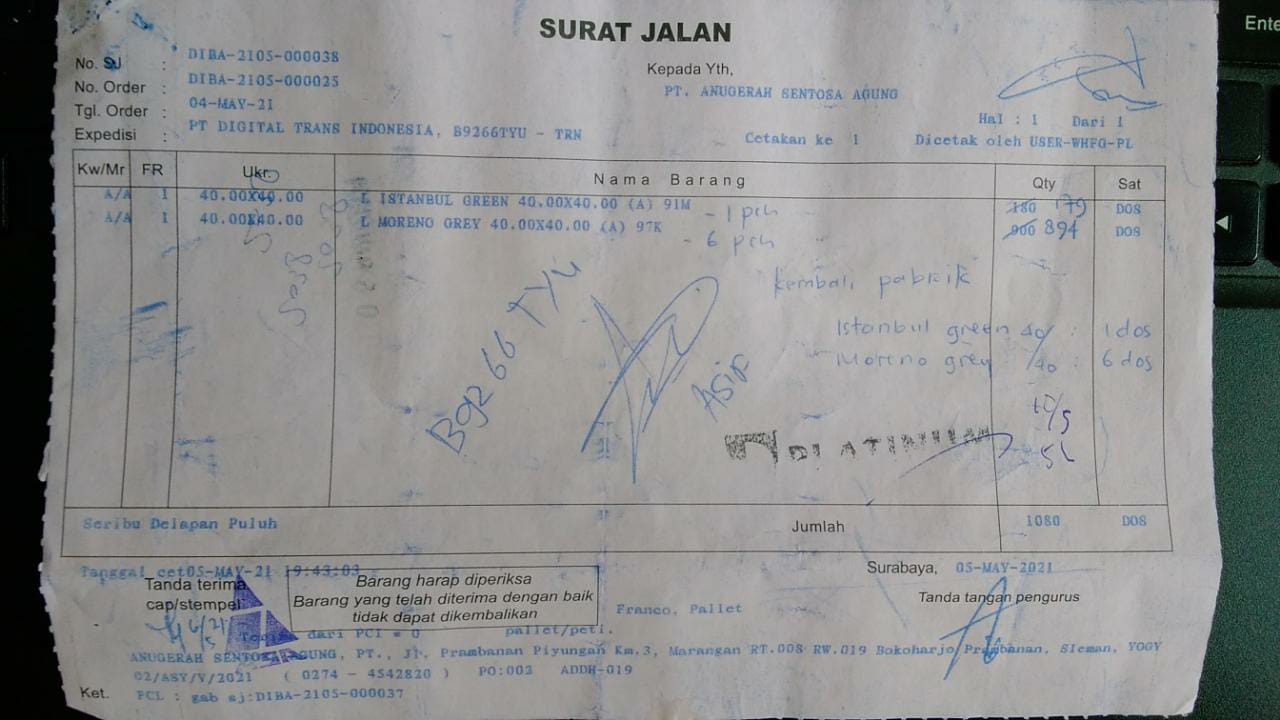 SURAT JALAN
Ente
No. SJ : DIBA-2105-000038
No. Order : DIBA-2105-000025
Tgl. Order : 04-MAY-21
Expedisi : PT DIGITAL TRANS INDONESIA, B9266TYU - TRN
Kepada Yth,
PT. ANUGERAH SENTOSA AGUNG
Hal : 1 Dari 1
Cetakan ke 1 Dicetak oleh USER-WHFG-PL
Kw/Mr FR Ukr. Nama Barang Qty Sat
A/A 1 40.00X40.00 L ISTANBUL GREEN 40.00X40.00 (A) 91M - 1 pch 180 179 DOS
A/A 1 40.00X40.00 L MORENO GREY 40.00X40.00 (A) 97K - 6 pch 900 894 DOS
kembali pabrik
Istanbul green 40/ : 1 dos
Moreno grey /40 : 6 dos
B9266 TYU
Asip
PLATINUM
Seribu Delapan Puluh Jumlah 1080 DOS
Tanggal cet05-MAY-21 19:43:03
Surabaya, 05-MAY-2021
Tanda terima
cap/stempel
Barang harap diperiksa
Barang yang telah diterima dengan baik
tidak dapat dikembalikan
Tanda tangan pengurus
Franco, Pallet
dari PCI = 0 pallet/peti.
ANUGERAH SENTOSA AGUNG, PT., Jl. Prambanan Piyungan Km.3, Marangan RT.008 RW.019 Bokoharjo Prambanan, Sleman, YOGY
02/ASY/V/2021 ( 0274 - 4542820 ) PO:002 ADDH-019
Ket. PCL : gab sj:DIBA-2105-000037